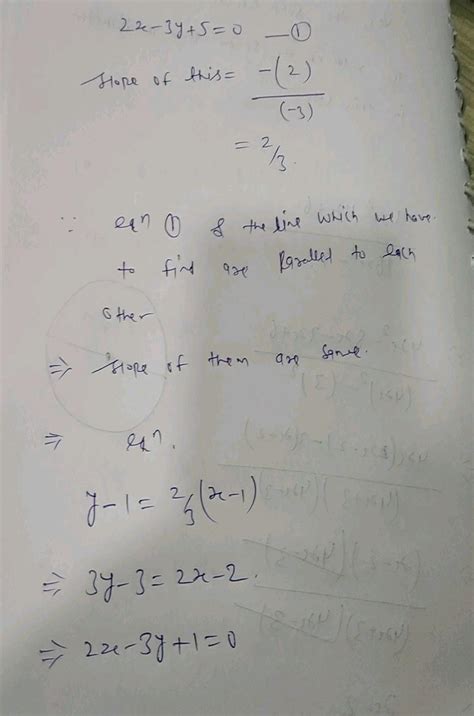 2x-3y+5=0 —①
slope of this = -(2)
(-3)
= 2/3.
∵ eqn ① & the line which we have
to find are parallel to each
other
⇒ slope of them are same.
⇒ eqn,
y-1 = 2/3 (x-1)
⇒ 3y-3 = 2x-2.
⇒ 2x-3y+1=0